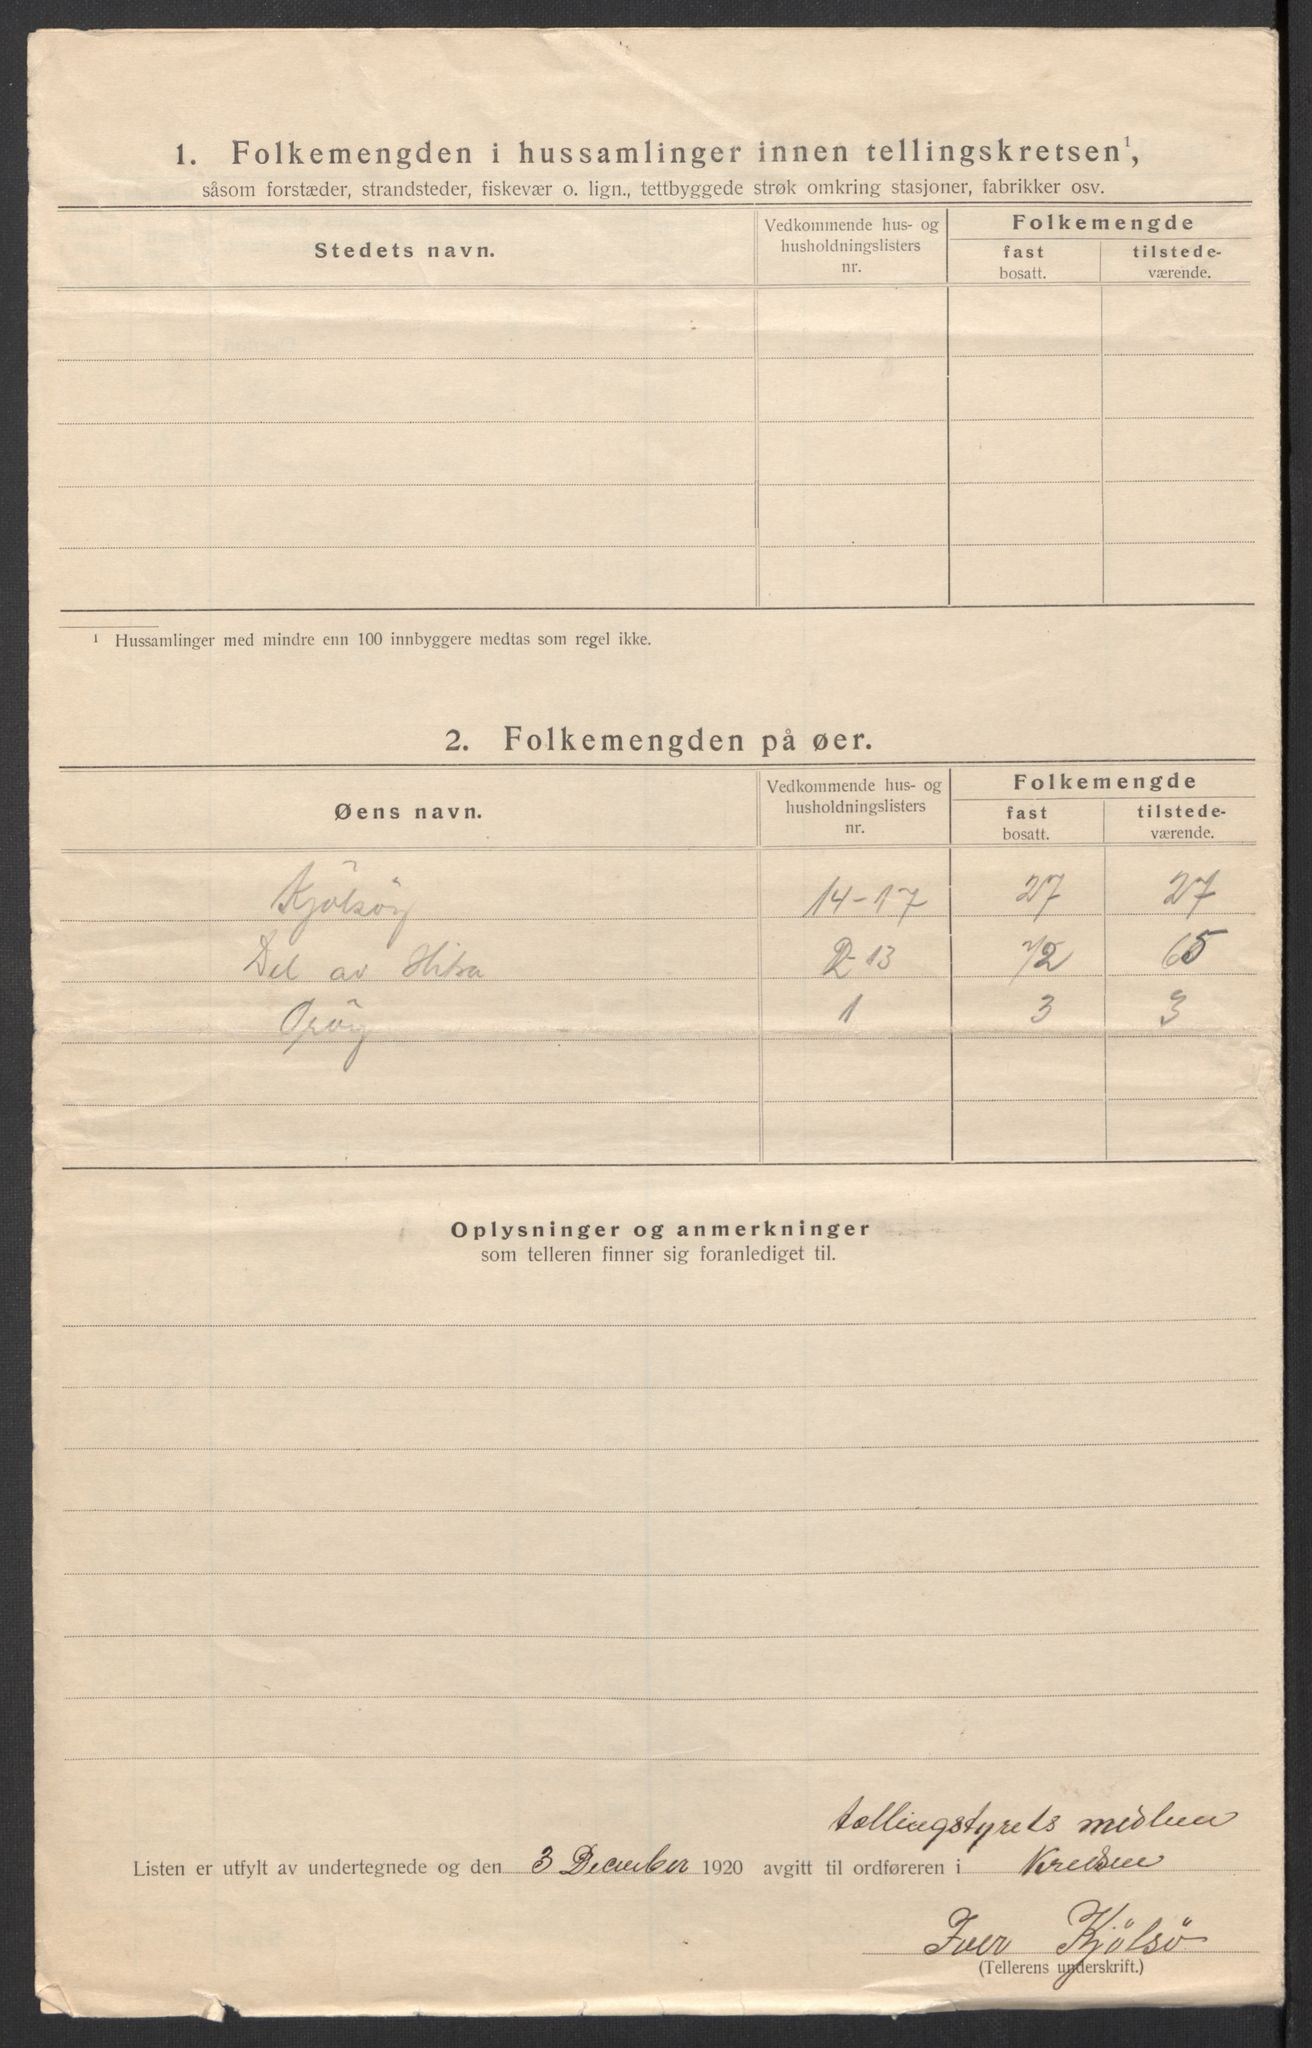 1. Folkemengden i hussamlinger innen tellingskretsen¹,
såsom forstæder, strandsteder, fiskevær o. lign., tettbyggede strøk omkring stasjoner, fabrikker osv.
Stedets navn.
Vedkommende hus- og husholdningslisters nr.
Folkemengde
fast bosatt.
tilstede-værende.
¹ Hussamlinger med mindre enn 100 innbyggere medtas som regel ikke.
2. Folkemengden på øer.
Øens navn.
Vedkommende hus- og husholdningslisters nr.
Folkemengde
fast bosatt.
tilstede-værende.
Kjölsöy 14-17 27 27
Del av Hitra 2-13 72 65
1 3 3
Oplysninger og anmerkninger
som telleren finner sig foranlediget til.
tællingstyrets medlem
Listen er utfylt av undertegnede og den 3 December 1920 avgitt til ordføreren i Kredsen
Iver Kjölsö
(Tellerens underskrift.)